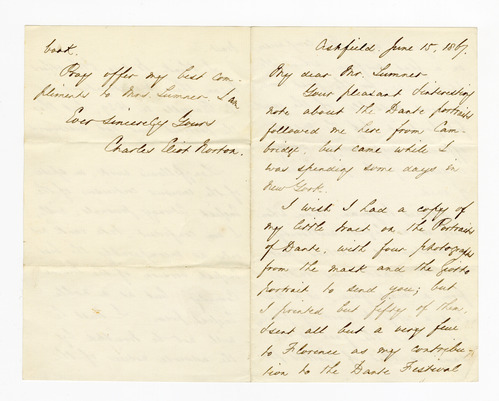 Ashfield. June 15, 1867.
My dear Mr. Sumner
Your pleasant & interesting
note about the Dante portraits
followed me here from Cam-
bridge, but came while I
was spending some days in
New York.
I wish I had a copy of
my little tract on the Portraits
of Dante, with four photographs
from the mask and the Giotto
portrait to send you; but
I printed but fifty of them,
& sent all but a very few
to Florence as my contribu-
tion to the Dante Festival
book.
Pray offer my best com-
pliments to Mrs. Sumner. I am
Ever sincerely Yours
Charles Eliot Norton.